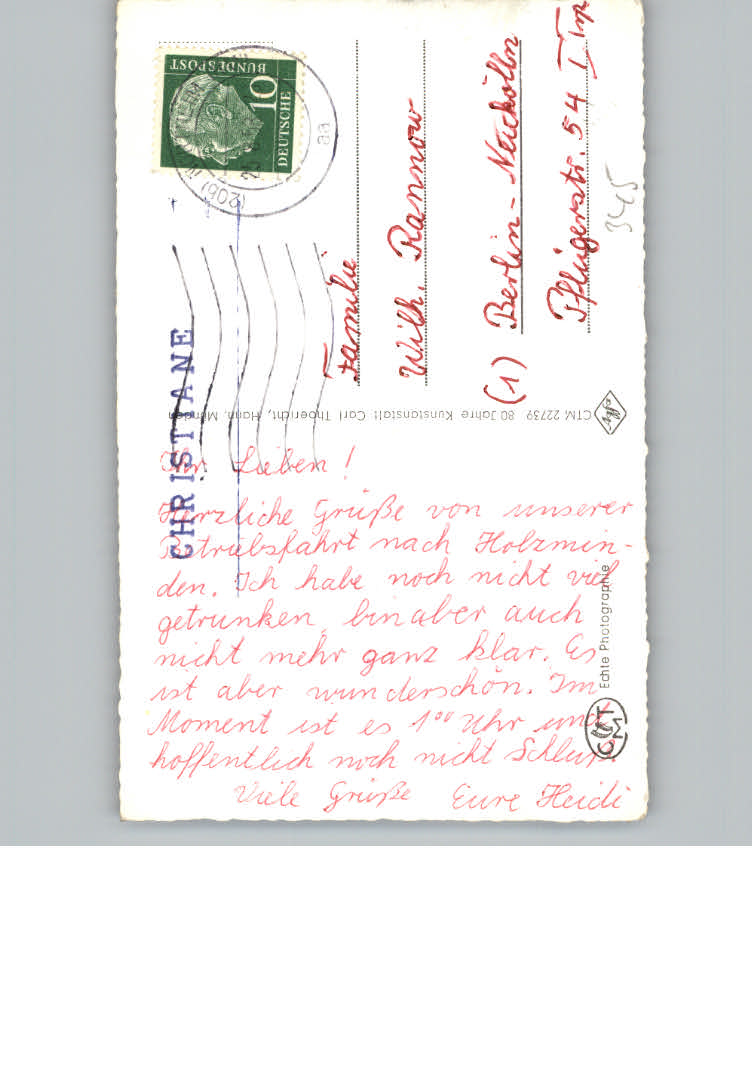 DEUTSCHE
BUNDESPOST
10
(20b)
aa
CHRISTIANE
Familie
Wilh. Rannow
(1) Berlin-Neukölln
Pflügerstr. 54 I Trp
345
CTM 22739 80 Jahre Kunstanstalt Carl Thoericht, Hann. Münden
Agfa
Ihr Lieben!
Herzliche Grüße von unserer
Betriebsfahrt nach Holzmin-
den. Ich habe noch nicht viel
getrunken, bin aber auch
nicht mehr ganz klar. Es
ist aber wunderschön. Im
Moment ist es 1⁰⁰ Uhr und
hoffentlich noch nicht Schluß.
Viele Grüße Eure Heidi
Echte Photographie
CMT